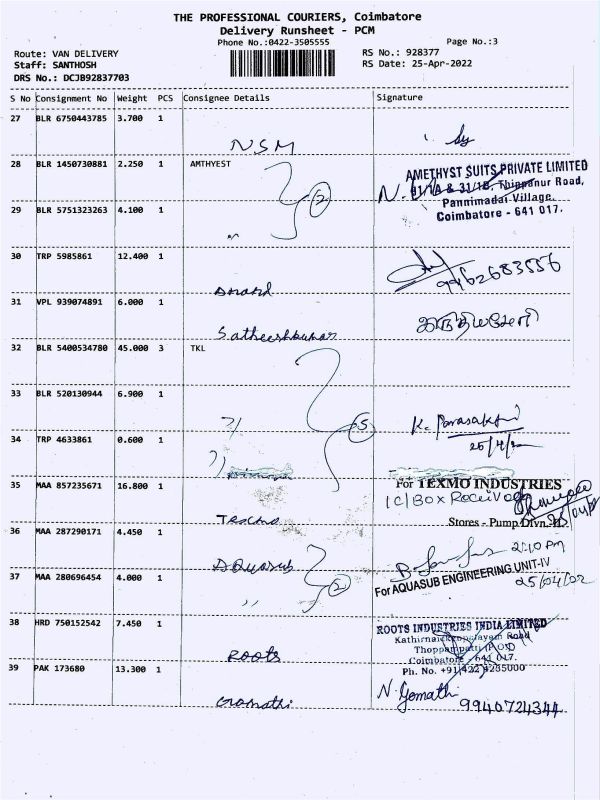 THE PROFESSIONAL COURIERS, Coimbatore
Delivery Runsheet - PCM
Phone No.:0422-3505555
Page No.:3
Route: VAN DELIVERY
Staff: SANTHOSH
DRS No.: DCJB92837703
RS No.: 928377
RS Date: 25-Apr-2022
S No Consignment No Weight PCS Consignee Details Signature
27 BLR 6750443785 3.700 1
NSM
28 BLR 1450730881 2.250 1 AMTHYEST
AMETHYST SUITS PRIVATE LIMITED
31/1A & 31/1B, Thippanur Road,
Pannimadai Village,
Coimbatore - 641 017.
2
29 BLR 5751323263 4.100 1
30 TRP 5985861 12.400 1
Anand
9962683556
31 VPL 939074891 6.000 1
Satheeshkumar
32 BLR 5400534780 45.000 3 TKL
33 BLR 520130944 6.900 1
5
K. Parasakthi
34 TRP 4633861 0.600 1
25/4/
35 MAA 857235671 16.800 1
For TEXMO INDUSTRIES
1 C/Box Received
Stores - Pump Divn. II
36 MAA 287290171 4.450 1
Aquasub
2:10 pm
37 MAA 280696454 4.000 1
2
For AQUASUB ENGINEERING UNIT-IV
25/04/02
38 HRD 750152542 7.450 1
Roots
ROOTS INDUSTRIES INDIA LIMITED
Kathirnaickenpalayam Road
Thoppampatti (P.O)
Coimbatore - 641 017.
Ph. No. +91 422 4235000
39 PAK 173680 13.300 1
Gomathi
N. Gomathi
9940724344